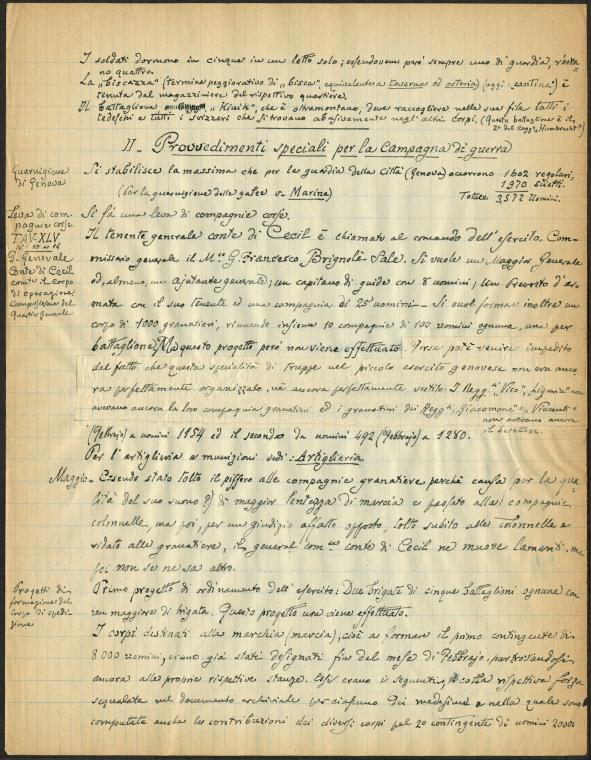 I soldati dormono in cinque in un letto solo; essendovene però sempre uno di guardia, resta-
no quattro.
La „biscazza" (termine peggiorativo di „bisca", equivalente a taverna od osteria (oggi cantina) è
tenuta dal magazziniere del rispettivo quartiere.
Il battaglione che è oltramontano, deve raccogliere nelle sue fila tutti i
tedeschi e tutti i svizzeri che si trovano abusivamente negli altri corpi. (Questo battaglione è il
2° del Regg.
II - Provvedimenti speciali per la Campagna di guerra
Guarnigione
di Genova
Si stabilisce la massima che per la guardia della Città (Genova) occorrono 1602 regolari,
1970 scelti.
(Per la guarnigione delle galee v. Marina) Totale 3,572 Uomini.
Leva di com-
pagnie corse.
TAV. XLV
N.i 10 a 14
Il Generale
Conte di Cecil
comte il Corpo
di operazione
Composizione del
Quartier generale
Si fà una leva di compagnie corse.
Il tenente generale conte di Cecil è chiamato al comando dell'esercito. Com-
missario generale il M.co G. Francesco Brignole-Sale. Si vuole un Maggior Generale
ed, almeno, un Ajutante generale; un capitano di guide con 8 uomini; Un Prevosto d'ar-
mata con il suo tenente ed una compagnia di 25 uomini - Si vuol formare inoltre un
corpo di 1000 granatieri, riunendo insieme 10 compagnie di 100 uomini ognuna, una per
battaglione. Ma questo progetto però non viene effettuato. Forse poté venire impedito
dal fatto che questa specialità di truppe nel piccolo esercito genovese non era anco-
ra perfettamente organizzata, nè ancora perfettamente vestita. I Regg.ti „Vico", „Liguria" non
avevano ancora la loro compagnia granatieri ed i granatieri dei Regg.ti „Giacomone" e „Vincenti"
non avevano ancora
il berrettone.
(Febbrajo) a uomini 1154 ed il secondo da uomini 492 (Febbrajo) a 1280.
Per l'artiglieria e munizioni vedi: Artiglieria
Maggio - Essendo stato tolto il piffero alle compagnie granatiere perchè causa (per la qua-
lità del suo suono?) di maggior lentezza di marcia e passato alla compagnie
colonnelle, ma poi, per un giudizio affatto opposto, tolto subito alle colonnelle e
ridato alle granatiere, il general com.te conte di Cecil ne muove lamenti, ma
poi non se ne sa altro.
Progetti di
formazione del
Corpo di spedi-
zione
Primo progetto di ordinamento dell'esercito: Due brigate di cinque battaglioni ognuna con
un maggiore di brigata. Questo progetto non viene effettuato.
I corpi destinati alla marchia (marcia), cioè a formare il primo contingente di
8000 uomini, erano già stati designati fin dal mese di Febbrajo, pur trovandosi
ancora alle proprie rispettive stanze. Essi erano i seguenti, colla rispettiva forza
segnalata nel documento archiviale per ciascuno dei medesimi e nella quale sono
computate anche le contribuzioni dei diversi corpi pel 2o contingente di uomini 2000: